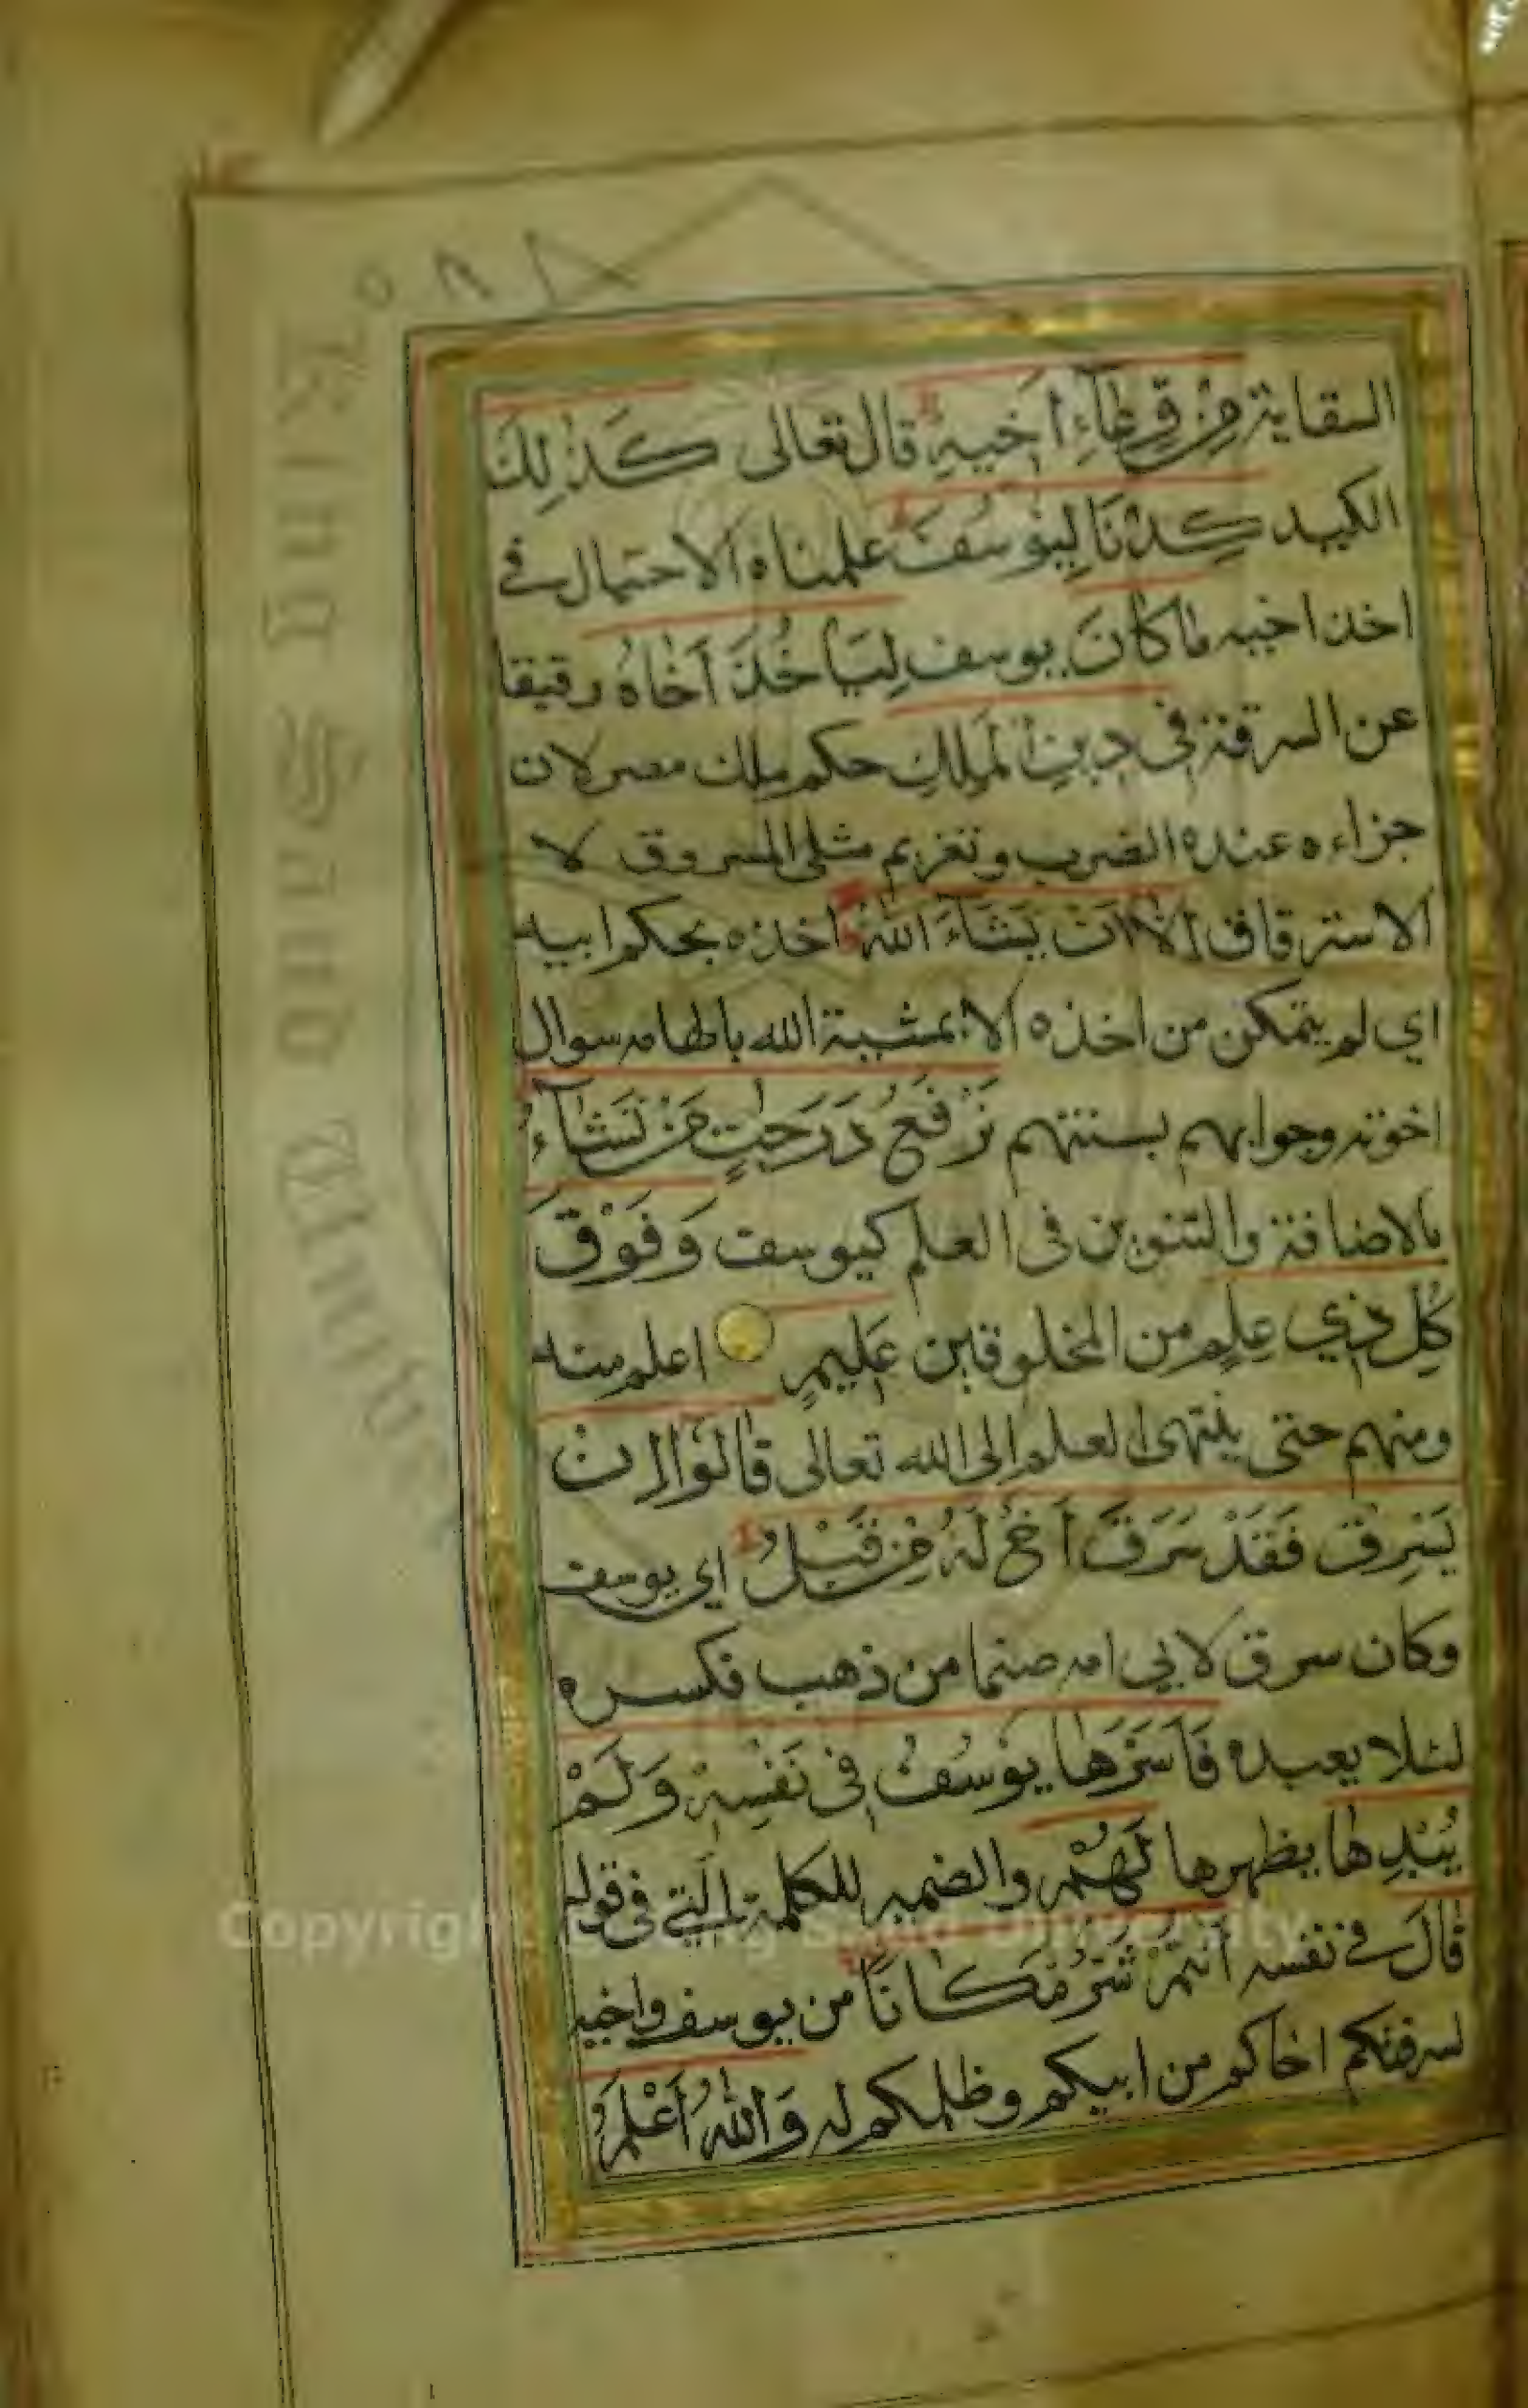 السقاية مِنْ وِعَاءِ أَخِيهِ قال تعالى كَذٰلِكَ
الكيد كِدْنَا لِيُوسُفَ علمناه الاحتيال في
اخذ اخيه مَا كَانَ يوسف لِيَأْخُذَ أَخَاهُ رقيقا
عن السرقة فِي دِينِ الْمَلِكِ حكم ملك مصر لان
جزاءه عنده الضرب وتغريم مثلى المسروق لا
الاسترقاق إِلَّا أَنْ يَشَاءَ اللّٰهُ اخذه بحكم ابيه
اي لم يتمكن من اخذه الا بمشية الله بالهامه سوال
اخوته وجوابهم بسنتهم نَرْفَعُ دَرَجٰتٍ مَنْ نَشَآءُ
بالاضافة والتنوين في العلم كيوسف وَفَوْقَ
كُلِّ ذِي عِلْمٍ من المخلوقين عَلِيمٍ اعلم منه
ومنهم حتى ينتهى العلم الى الله تعالى قَالُوا إِنْ
يَسْرِقْ فَقَدْ سَرَقَ أَخٌ لَهُ مِنْ قَبْلُ اي يوسف
وكان سرق لابي امه صنما من ذهب فكسره
لئلا يعبده فَأَسَرَّهَا يُوسُفُ فِي نَفْسِهِ وَلَمْ
يُبْدِهَا يظهرها لَهُمْ والضمير للكلمة التي في قوله
قَالَ في نفسه أَنْتُمْ شَرٌّ مَكَانًا من يوسف واخيه
لسرقتكم اخاكم من ابيكم وظلمكم له وَاللّٰهُ أَعْلَمُ
King Saud University
Copyright © King Saud University